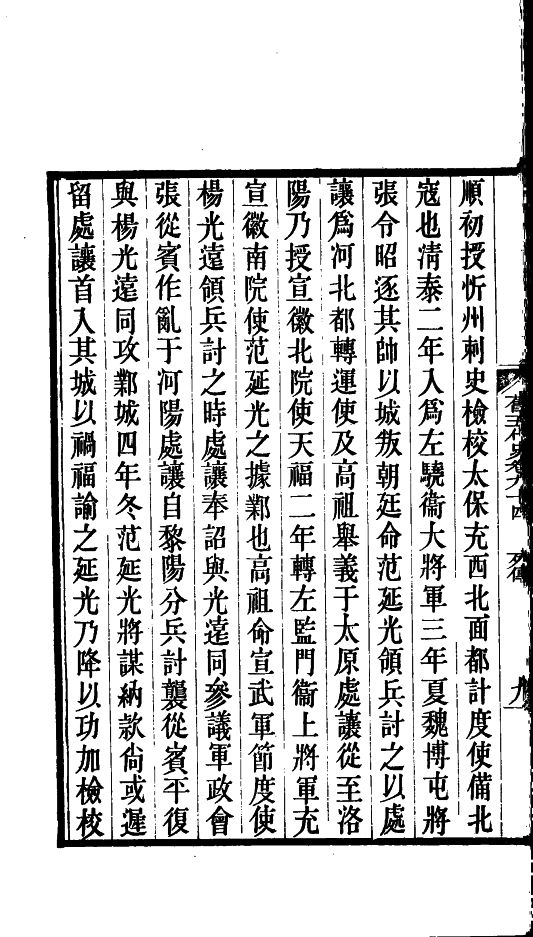 順初授忻州刺史檢校太保充西北面都計度使備北
寇也淸泰二年入爲左驍衞大將軍三年夏魏博屯將
張令昭逐其帥以城叛朝廷命范延光領兵討之以處
讓爲河北都轉運使及高祖舉義于太原處讓從至洛
陽乃授宣徽北院使天福二年轉左監門衞上將軍充
宣徽南院使范延光之據鄴也高祖命宣武軍節度使
楊光遠領兵討之時處讓奉詔與光遠同參議軍政會
張從賓作亂于河陽處讓自黎陽分兵討襲從賓平復
與楊光遠同攻鄴城四年冬范延光將謀納款尙或遲
留處讓首入其城以禍福諭之延光乃降以功加檢校
舊五代史卷九十四
列傳
九